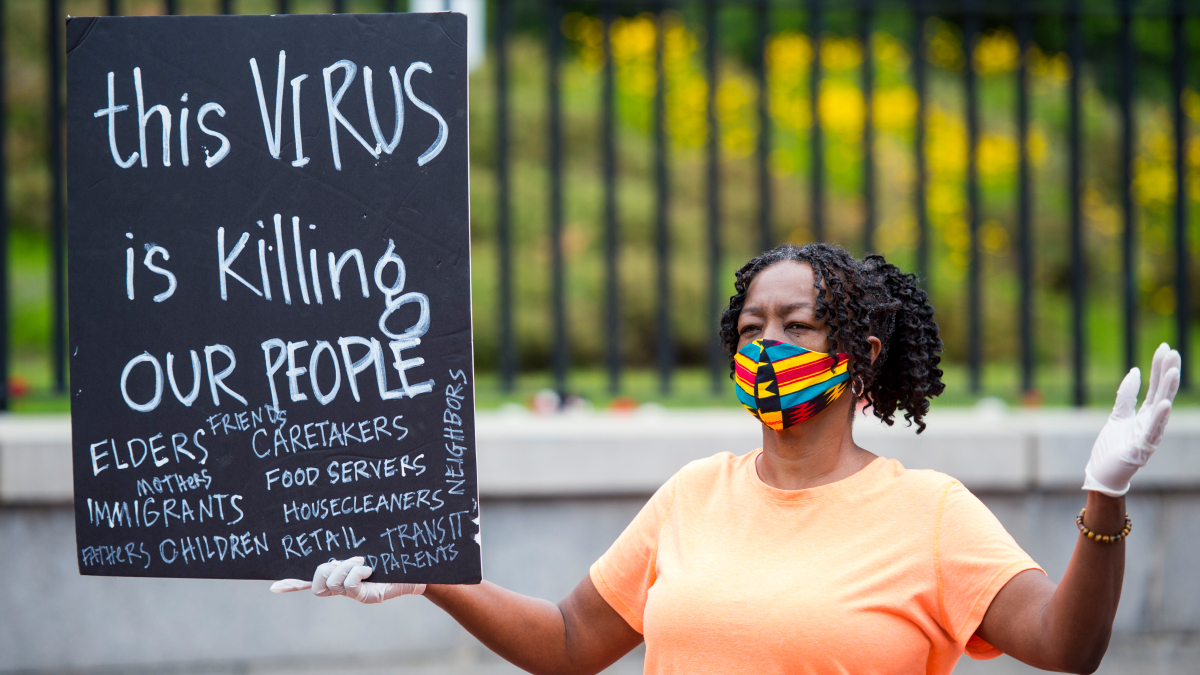 this VIRUS
is Killing
OUR PEOPLE
FRIENDS
ELDERS CARETAKERS
MOTHERS FOOD SERVERS
NEIGHBORS
IMMIGRANTS HOUSECLEANERS
FATHERS CHILDREN RETAIL TRANSIT